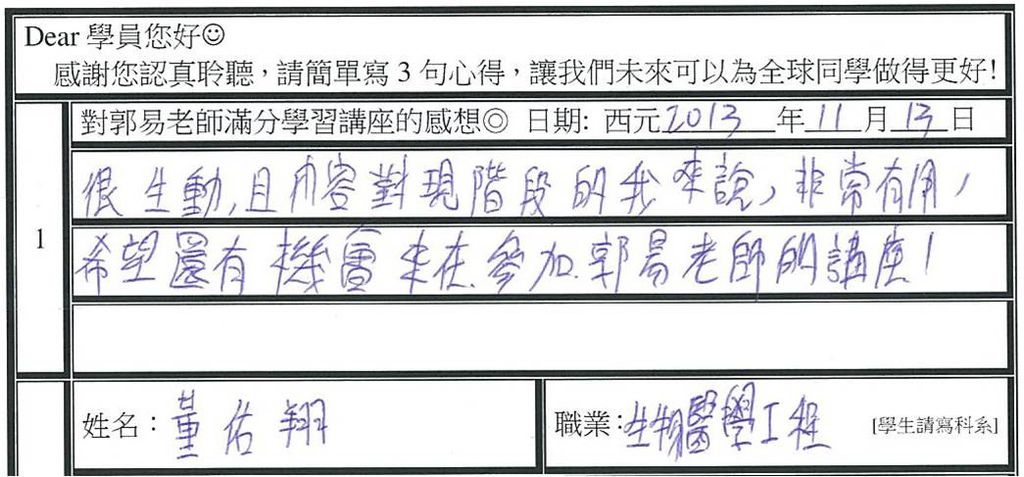 Dear 學員您好☺
感謝您認真聆聽，請簡單寫 3 句心得，讓我們未來可以為全球同學做得更好!
對郭易老師滿分學習講座的感想◎ 日期: 西元2013年11月13日
1
很生動,且內容對現階段的我來說,非常有用,
希望還有機會來在參加.郭易老師的講座!
姓名：董佑翔
職業:生物醫學工程 [學生請寫科系]